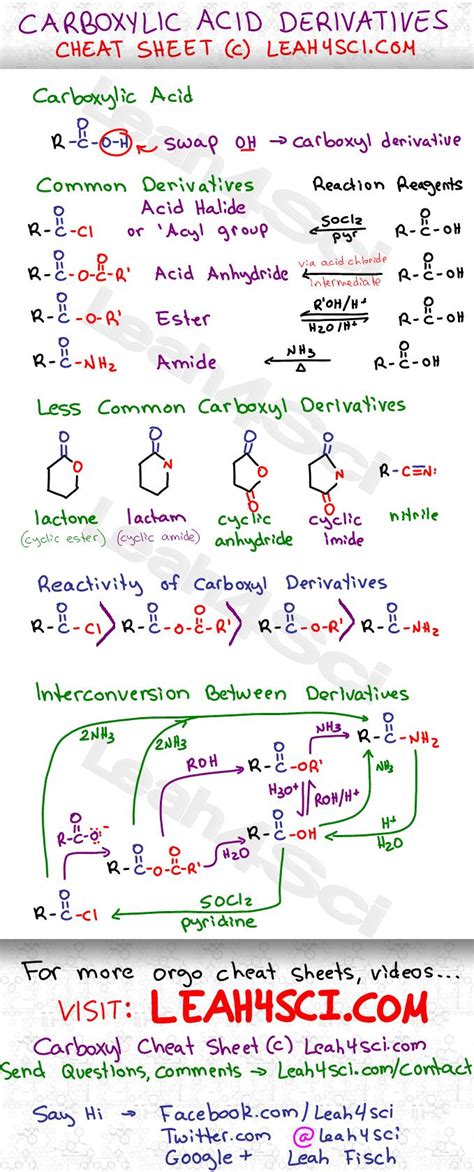 CARBOXYLIC ACID DERIVATIVES
CHEAT SHEET (c) LEAH4SCI.COM
Carboxylic Acid
R-C-O-H swap OH → carboxyl derivative
O
Common Derivatives Reaction Reagents
O
R-C-Cl Acid Halide or 'Acyl group SOCl2 pyr R-C-OH
O O
R-C-O-C-R' Acid Anhydride via acid chloride intermediate R-C-OH
O
R-C-O-R' Ester R'OH/H+ H2O/H+ R-C-OH
O
R-C-NH2 Amide NH3 Δ R-C-OH
Less Common Carboxyl Derivatives
O O O O
O N O N R-C≡N:
O O
lactone lactam cyclic cyclic nitrile
(cyclic ester) (cyclic amide) anhydride imide
Reactivity of Carboxyl Derivatives
O O O O O
R-C-Cl > R-C-O-C-R' > R-C-O-R' > R-C-NH2
Interconversion Between Derivatives
2NH3 2NH3 NH3 O
R-C-NH2
ROH O
R-C-OR' NH3
H3O+ ROH/H+
O
R-C-O- O
R-C-OH H+
H2O
O O
R-C-O-C-R' H2O
O
R-C-Cl SOCl2
pyridine
For more orgo cheat sheets, videos...
VISIT: LEAH4SCI.COM
Carboxyl Cheat Sheet (c) Leah4sci.com
Send Questions, comments → Leah4sci.com/contact
Say Hi → Facebook.com/Leah4sci
Twitter.com @leah4sci
Google+ Leah Fisch
Leah4Sci
Leah4Sci
Leah4Sci
Leah4Sci